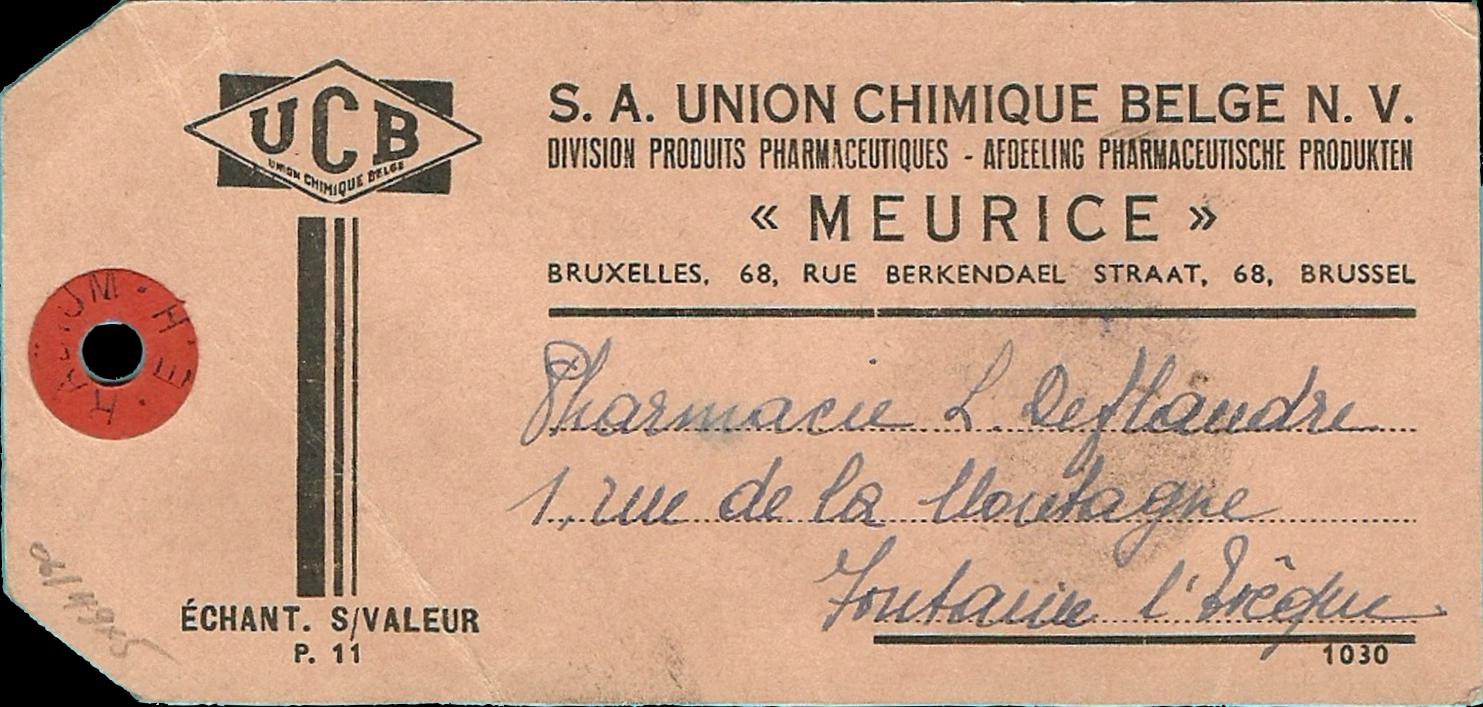 UCB
UNION CHIMIQUE BELGE
S. A. UNION CHIMIQUE BELGE N. V.
DIVISION PRODUITS PHARMACEUTIQUES - AFDEELING PHARMACEUTISCHE PRODUKTEN
« MEURICE »
BRUXELLES, 68, RUE BERKENDAEL STRAAT, 68, BRUSSEL
Pharmacie L. Deflandre
1, rue de la Montagne
Fontaine l'Evêque
ÉCHANT. S/VALEUR
P. 11
1030